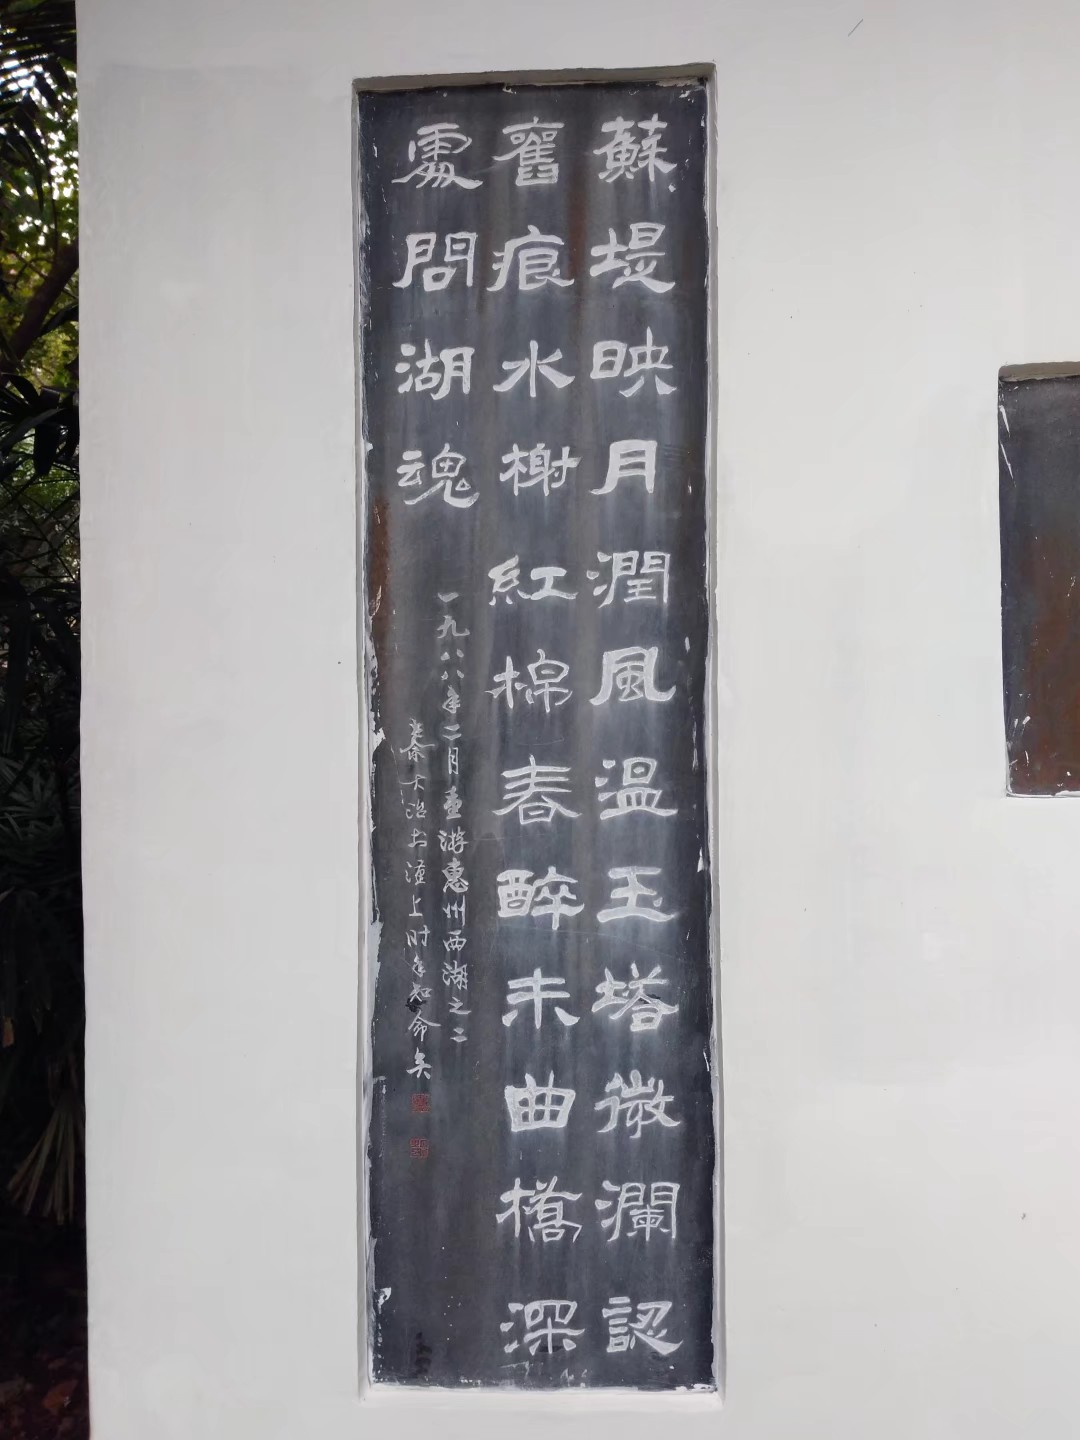 蘇堤映月潤風溫玉塔微瀾認
舊痕水榭紅棉春醉未曲橋深
處問湖魂
一九八八年二月重游惠州西湖之二
秦大治书滬上时年知命矣